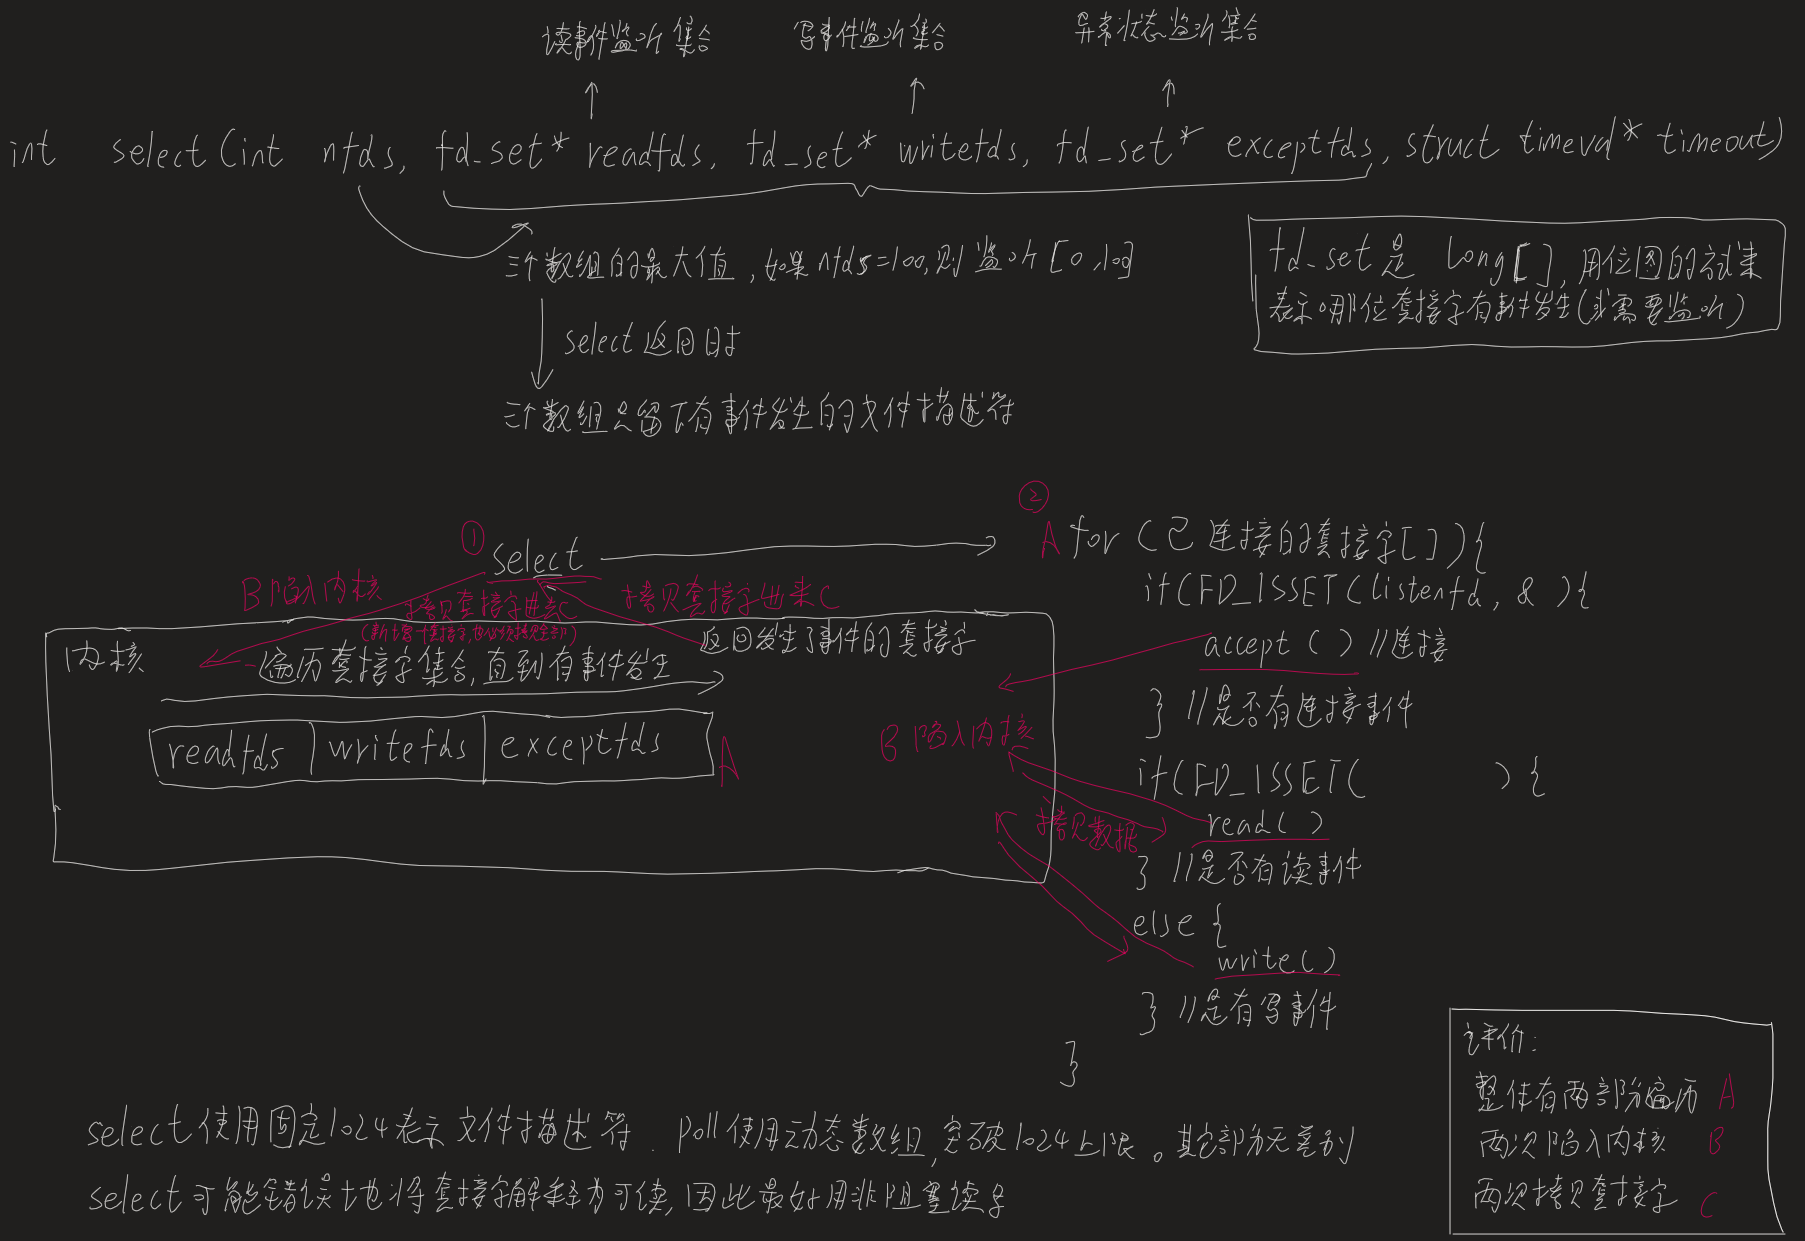 读事件监听集合
写事件监听集合
异常状态监听集合
int select(int nfds, fd_set* readfds, fd_set* writefds, fd_set* exceptfds, struct timeval* timeout)
三个数组的最大值,如果nfds=100,则监听[0,100]
fd_set是 long[],用位图的方式来
表示哪位套接字有事件发生(或需要监听)
select返回时
三个数组只留下有事件发生的文件描述符
①
select
②
A
for (已连接的套接字[]){
if(FD_ISSET(listenfd, & ){
accept() //连接
} //是否有连接事件
if(FD_ISSET( ) {
read()
} //是否有读事件
else {
write()
} //是有写事件
}
B陷入内核
拷贝套接字进来C
(新增一个套接字,也必须拷贝全部)
拷贝套接字出来C
内核
遍历套接字集合,直到有事件发生
返回发生了事件的套接字
readfds
writefds
exceptfds
A
B 陷入内核
拷贝数据
评价:
整体有两部分遍历 A
两次陷入内核 B
两次拷贝套接字 C
select使用固定1024表示文件描述符. poll使用动态数组,突破1024上限。其它部分无差别
select可能错误地将套接字解释为可读,因此最好用非阻塞读写